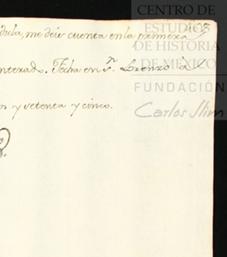 CENTRO DE
ESTUDIOS
DE HISTORIA
DE MÉXICO
dula, me deis cuenta en la primera
nterado. Fecha en Sn. Lorenzo à
FUNDACIÓN
os y setenta y cinco.
Carlos Slim